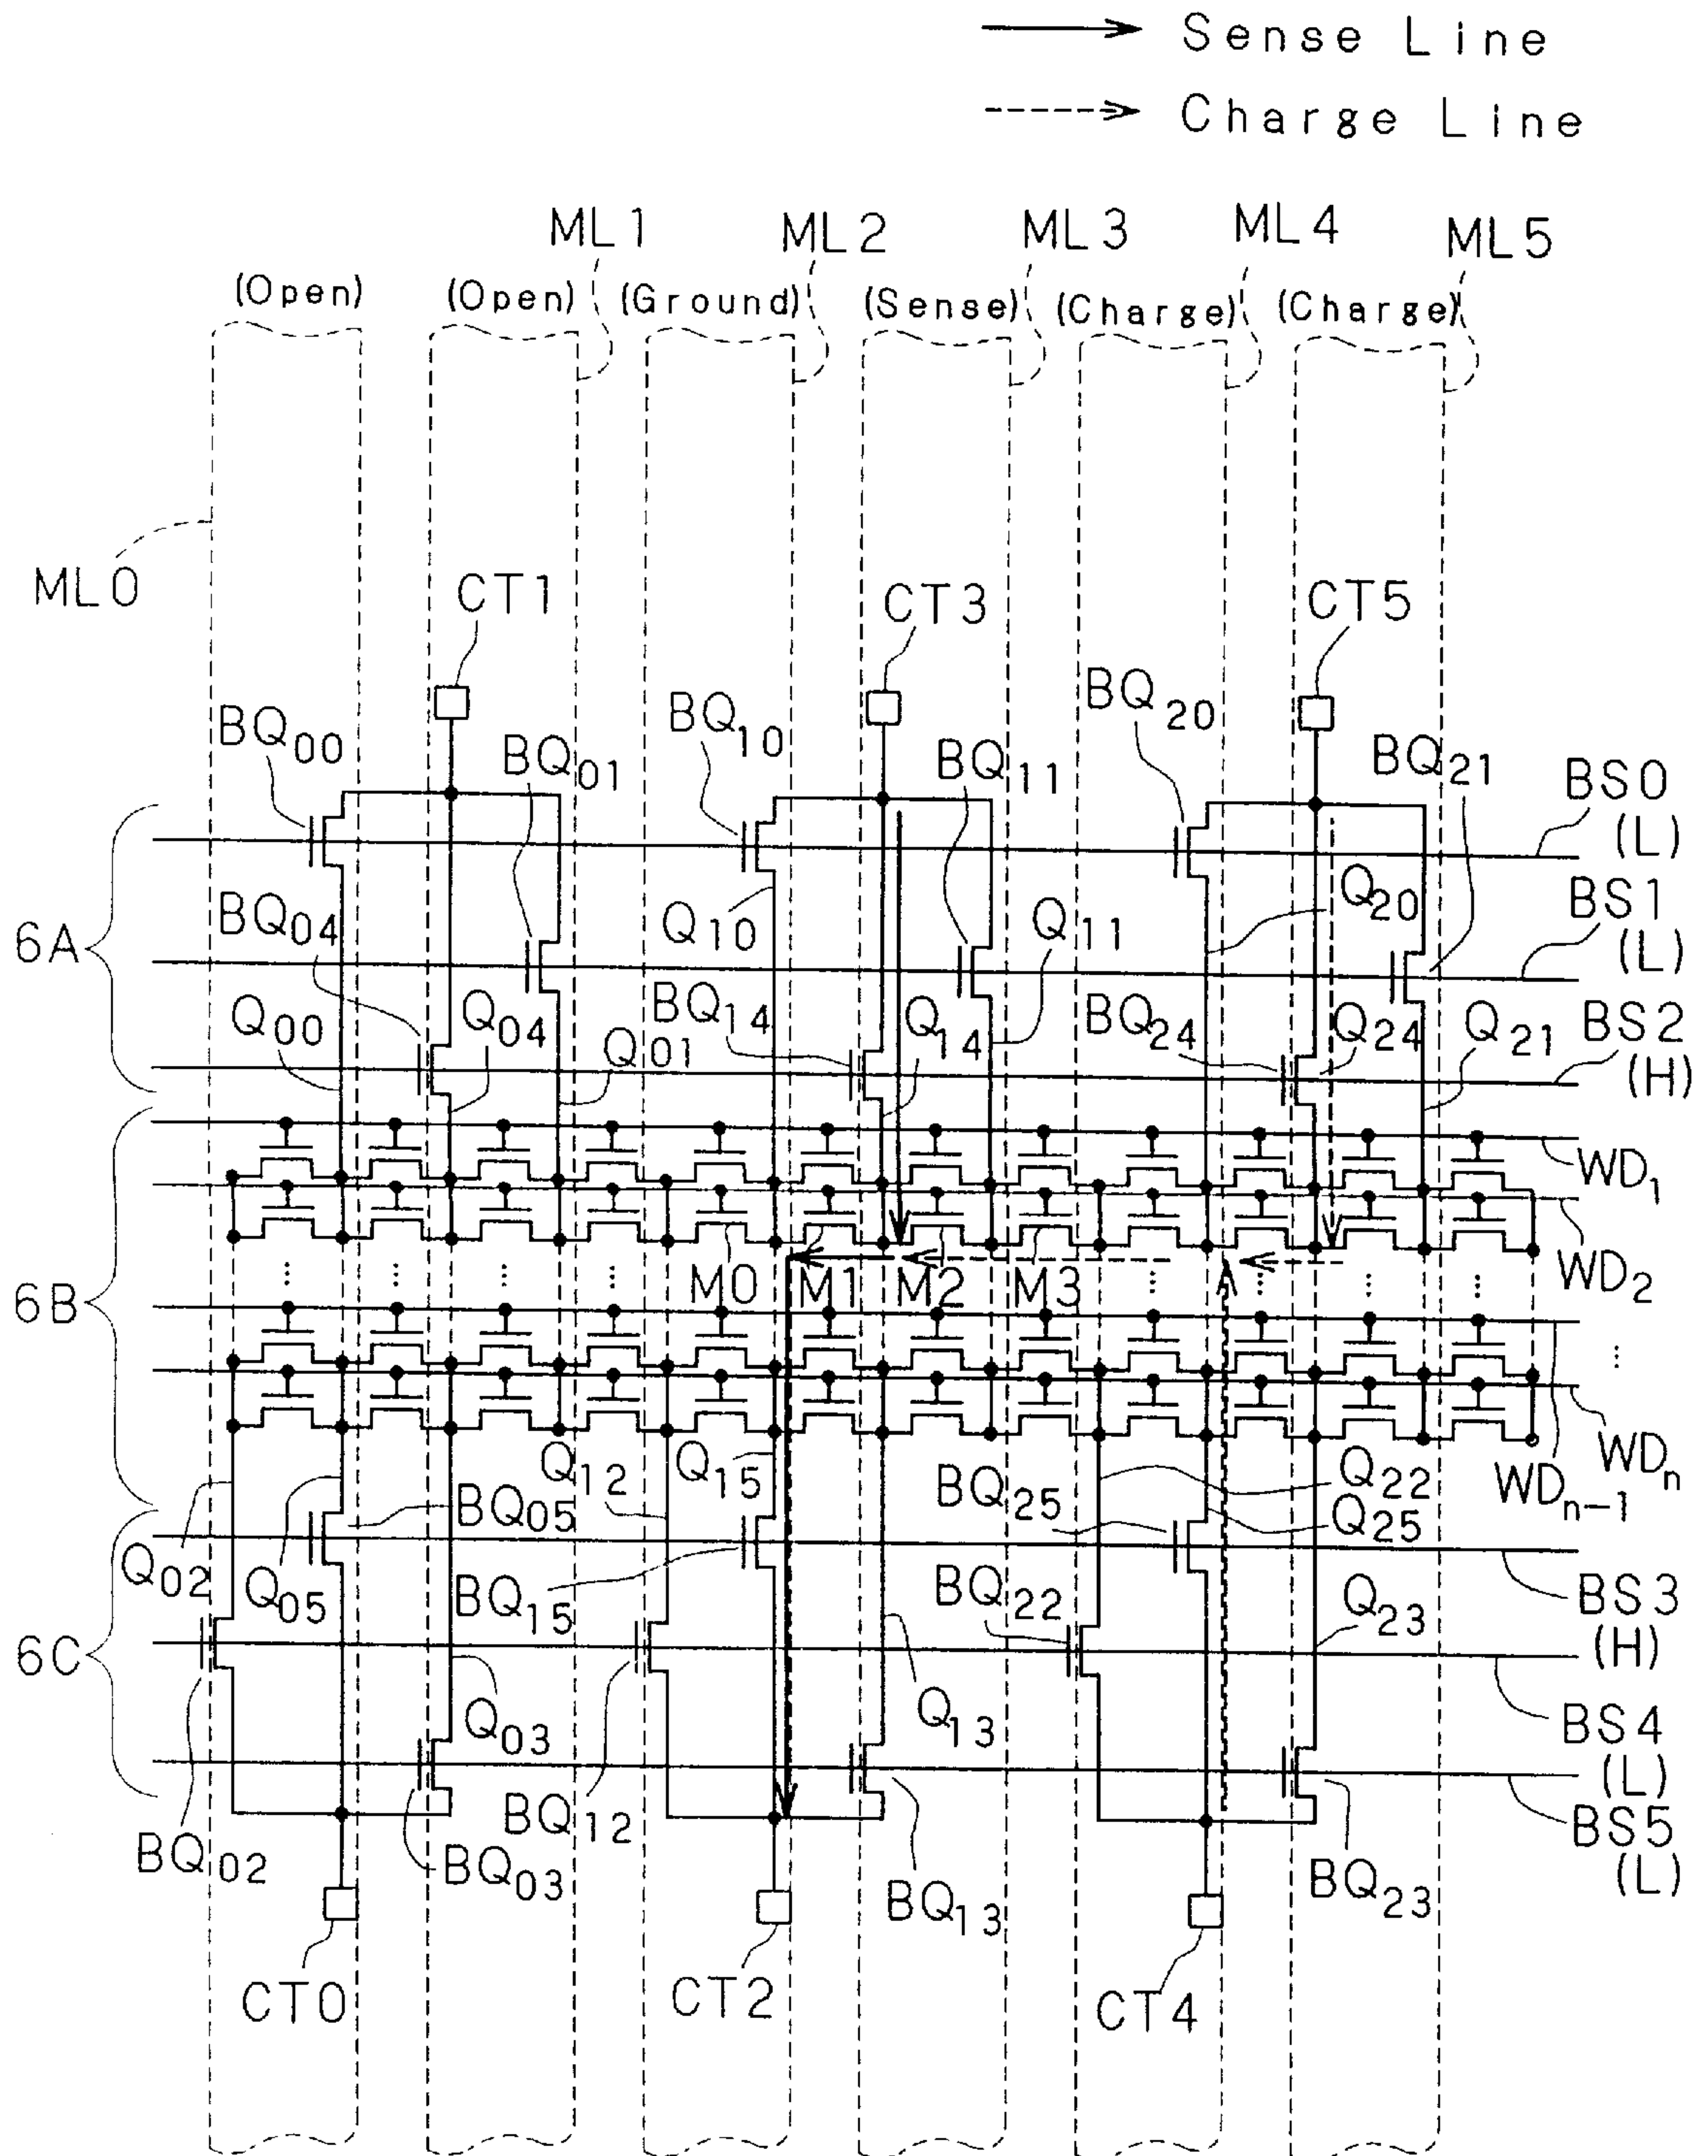 Sense Line
Charge Line
ML1
ML2
ML3
ML4
ML5
(Open)
(Open)
(Ground)
(Sense)
(Charge)
(Charge)
ML0
CT1
CT3
CT5
BQ00
BQ01
BQ10
BQ11
BQ20
BQ21
BS0
(L)
6A
BQ04
Q10
Q11
Q20
BS1
(L)
Q00
Q04
Q01
BQ14
Q14
BQ24
Q24
Q21
BS2
(H)
WD1
6B
M0
M1
M2
M3
WD2
Q12
Q15
Q22
WDn
WDn-1
BQ05
BQ25
Q25
Q02
Q05
BQ15
BQ22
BS3
(H)
6C
Q23
Q03
Q13
BS4
(L)
BQ02
BQ03
BQ12
BQ13
BQ23
BS5
(L)
CT0
CT2
CT4